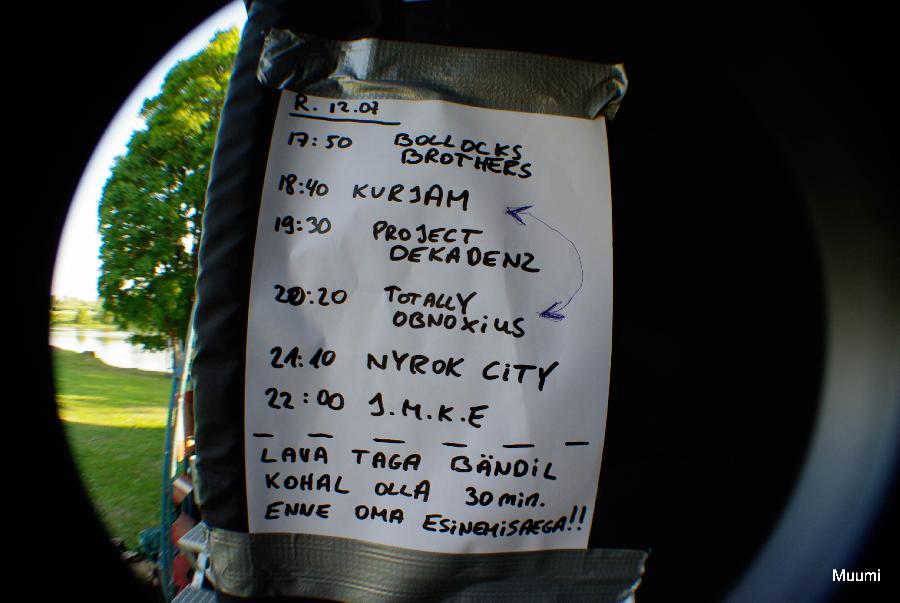 R. 12.07
17:50 BOLLOCKS
BROTHERS
18:40 KURJAM
19:30 PROJECT
DEKADENZ
20:20 TOTALLY
OBNOXiUS
21:10 NYROK CiTY
22:00 J.M.K.E
LAVA TAGA BÄNDiL
KOHAL OLLA 30 min.
ENNE OMA ESiNEMiSAEGA!!
Muumi